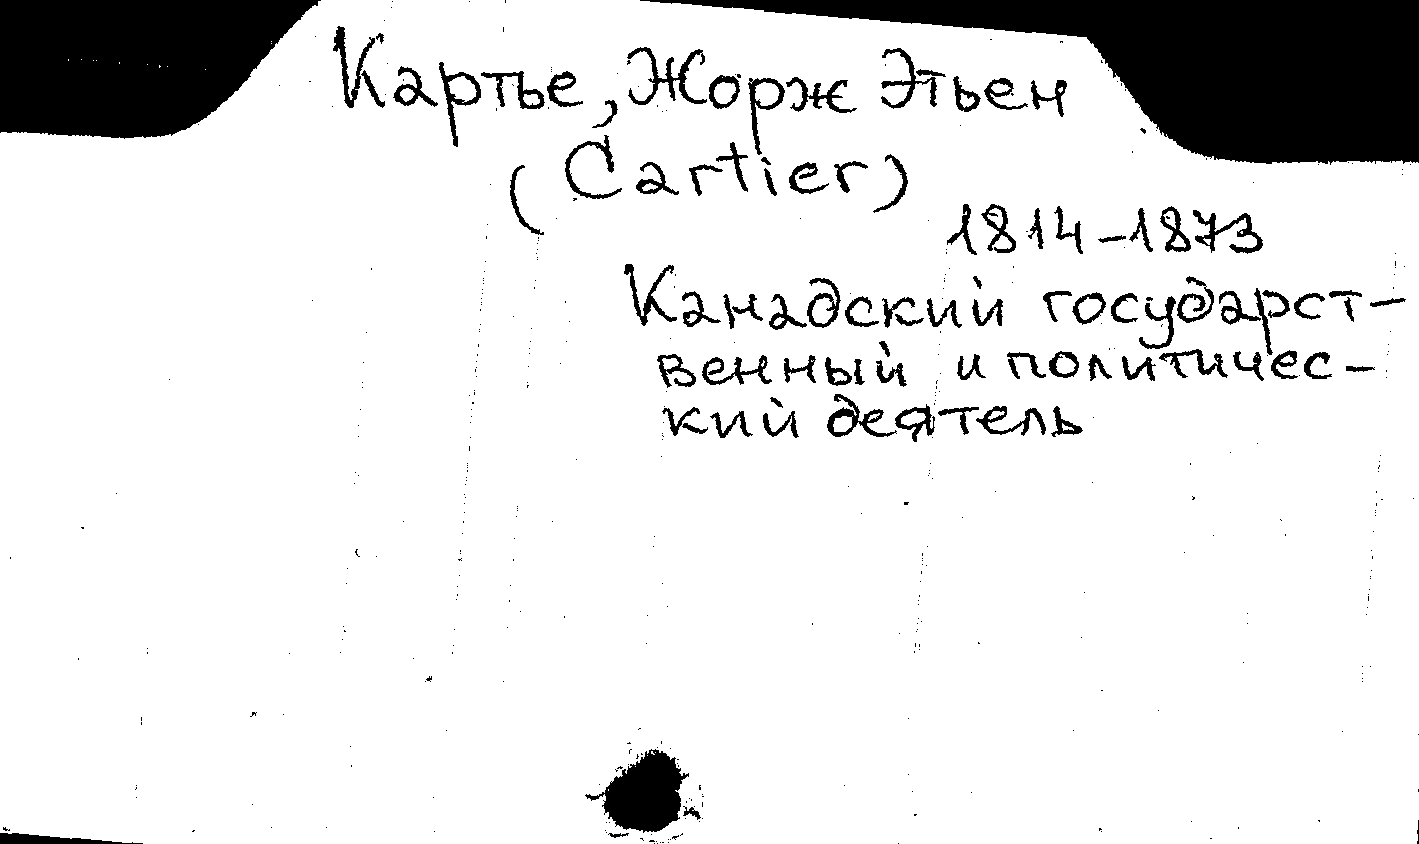 Картье, Жорж Этьен
(Cartier)
1814-1873
Канадский государст-
венный и политичес-
кий деятель